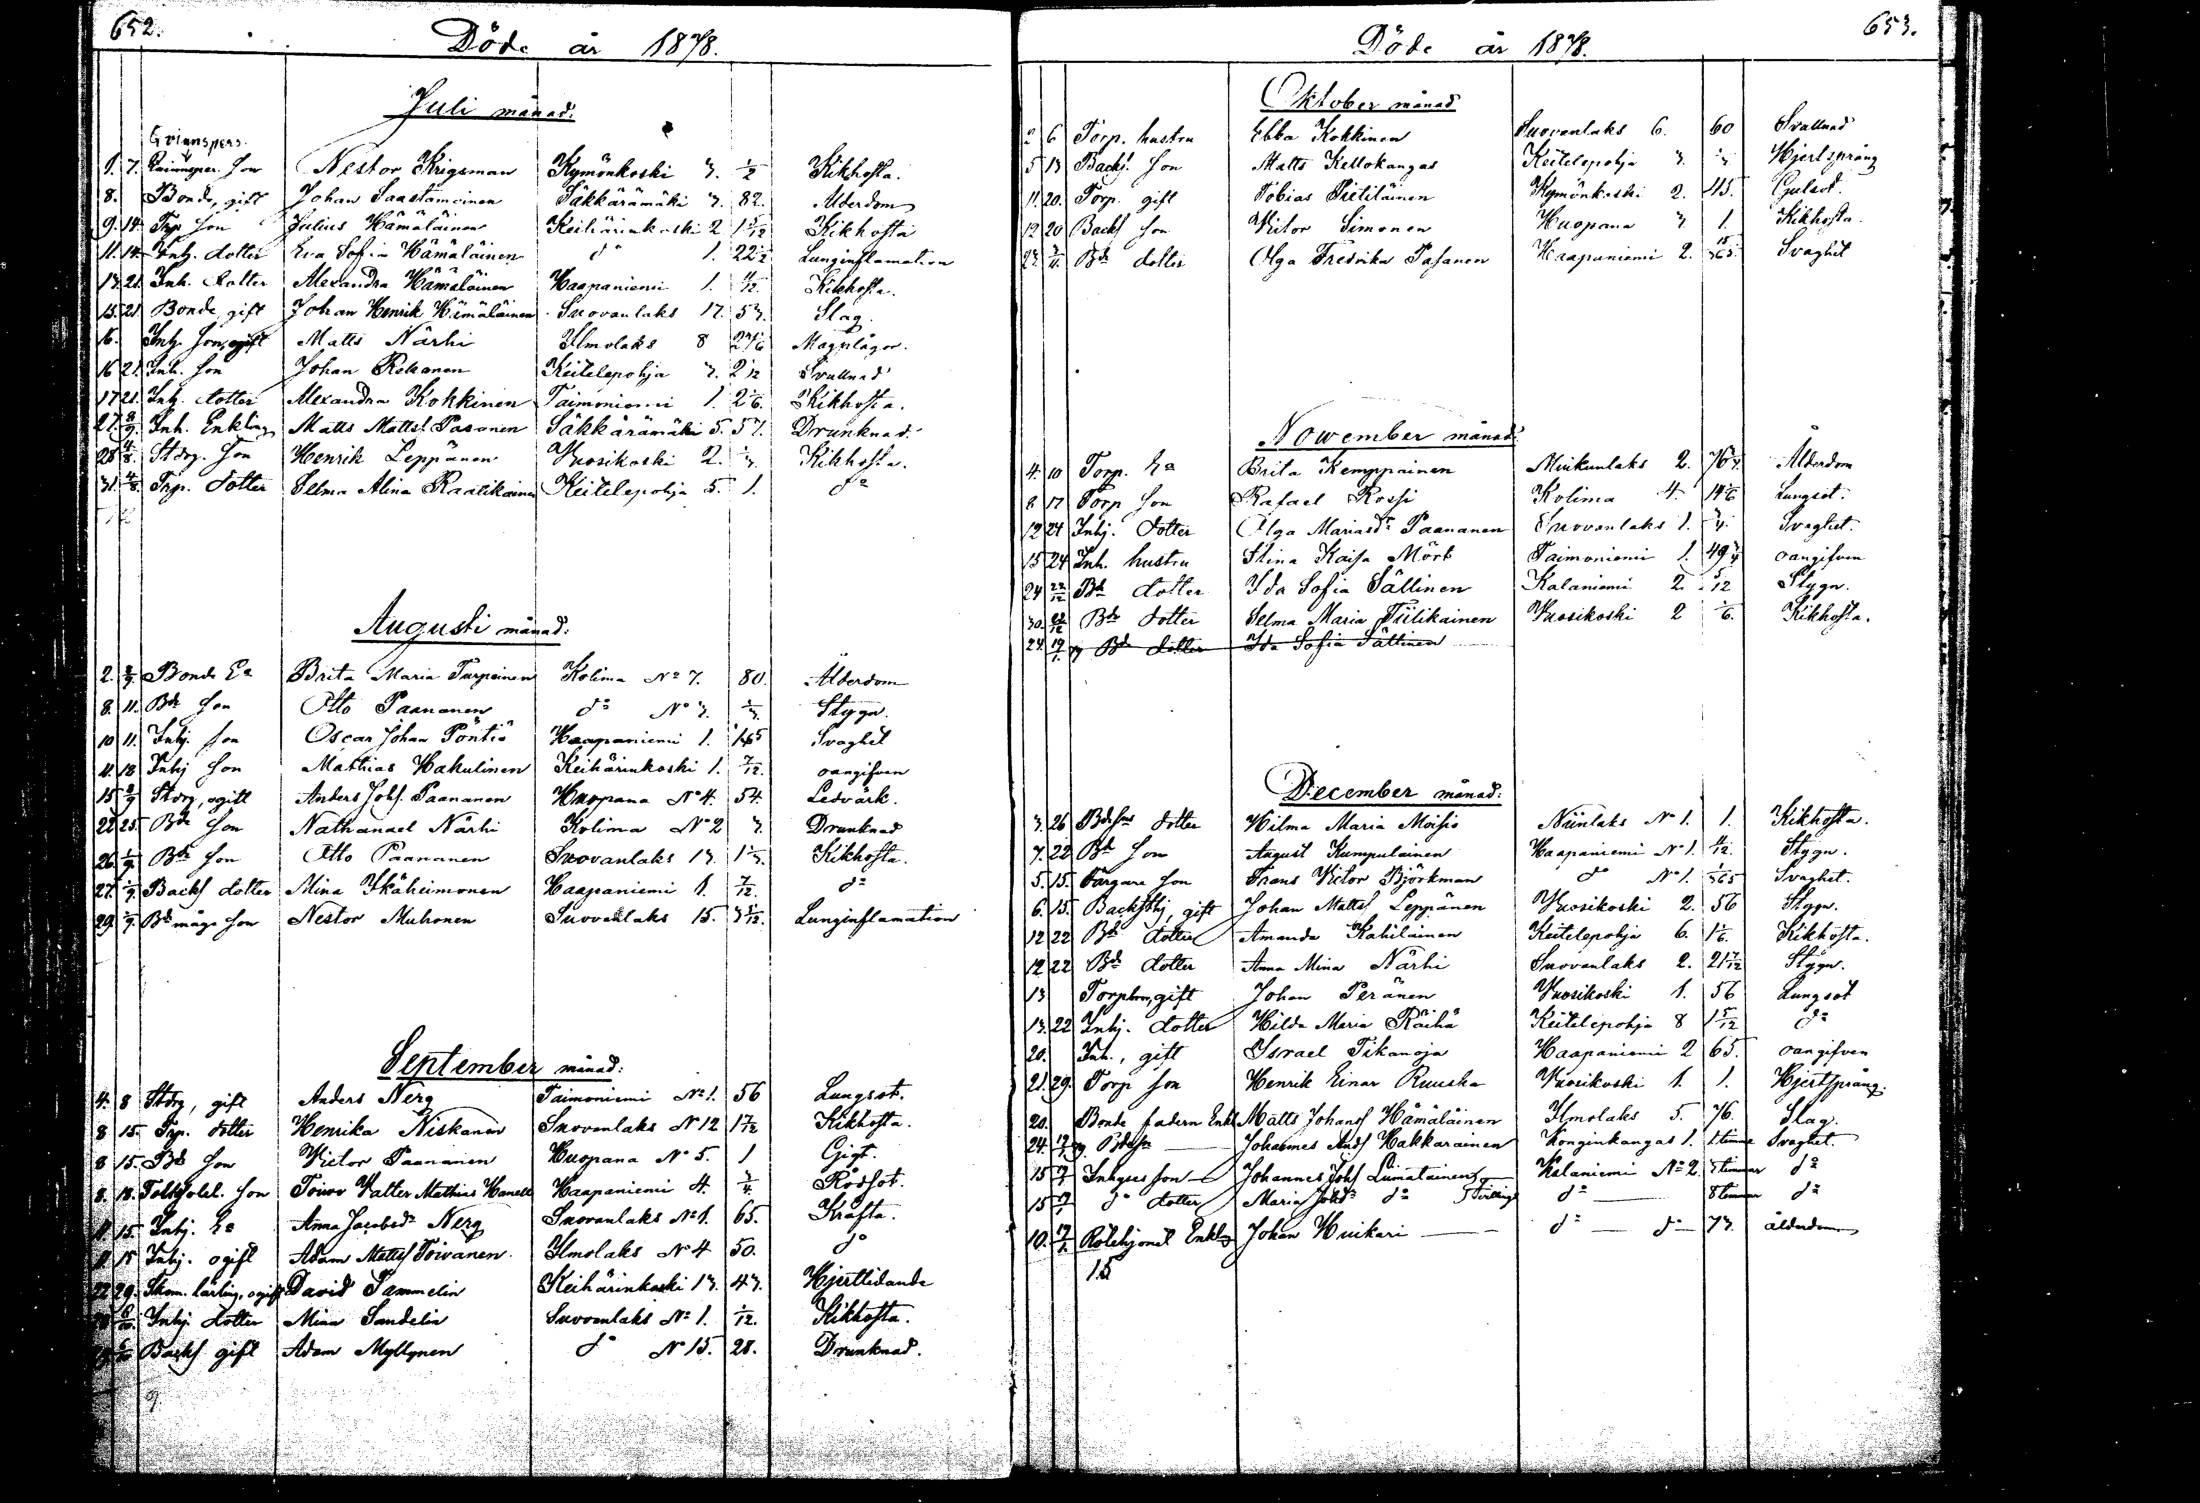 652.
Döde år 1878.
Juli månad:
Grännspers.
1. 7. son Nestor Krigsman Kymönkoski 3. 1/2 Kikhosta.
8. Bonde, gift Johan Saastamoinen Säkkärämäki 3. 82. Ålderdom
9. 14. Trp son Julius Hämäläinen Keihärinkoski 2 1 5/12 Kikhosta
11. 14. Inh. dotter Eva Sofia Hämäläinen do 1. 22 1/2 Lunginflamation
13. 21. Inh. dotter Alexandra Hämäläinen Haapaniemi 1. Kikhosta.
15. 21. Bonde, gift Johan Henrik Hämäläinen Suovanlaks 17. 53. Slag.
16. Inh. son, ogift Matts Närhi Ilmolaks 8 Magplågor.
16 21. Inh. son Johan Rekonen Keitelepohja 3. 2 1/12 Svullnad
17 21. Inh. dotter Alexandra Kokkinen Taimoniemi 1. 2 1/6. Kikhosta.
27. 8/9. Inh. Enkling Matts Matts. Pasanen Säkkärämäki 5. 57. Drunknad.
28 4/8. Stdrg. son Henrik Leppänen Vuosikoski 2. 1/3. Kikhosta.
31. 4/8. Trp. dotter Selma Alina Raatikainen Keitelepohja 5. 1. do
Augusti månad:
2. Bonde Ea Brita Maria Turpeinen Kolima No 7. 80. Ålderdom
8. 11. Bde son Otto Paananen do No 3. 1/3. Stygn.
10 11. Inhj. son Oscar Johan Pöntiö Haapaniemi 1. Svaghet
11. 18 Inhj son Mathias Hakulinen Keihärinkoski 1. 7/12. oangifven
15 Stdrg, ogift Anders Johs. Paananen Huopana No 4. 54. Ledvärk.
22 25. Bde son Nathanael Närhi Kolima No 2 3. Drunknad
26. 1/9. Bde son Otto Paananen Suovanlaks 13. 1 1/3. Kikhosta.
27. 1/9. Backs dotter Mina Ikäheimonen Haapaniemi 1. 7/12. do
29. 1/9. Bde mågs son Nestor Muhonen Suovanlaks 15. 3 1/12. Lunginflamation
September månad:
4. 8 Stdrg, gift Anders Nerg Taimoniemi No 1. 56 Lungsot.
8 15. Trp. dotter Henrika Niskanen Suovanlaks No 12 1 7/12 Kikhosta.
8 15. Bde son Victor Paananen Huopana No 5. 1 Gigt.
8. 18. son Toivo Valter Mathias Haapaniemi 4. 3/4. Rödsot.
11 15. Inhj. Ea Anna Jacobsdr Nerg Suovanlaks No 1. 65. Kräfta.
11 15 Inhj. ogift Adam Matts Toivanen Ilmolaks No 4 50. do
22 29. Skom. lärling, ogift David Sammelin Keihärinkoski 13. 43. Hjertlidande
6/10. Inhj. dotter Mina Sandelin Suovanlaks No 1. 1/12. Kikhosta.
6/10 Backs gift Adam Myllynen do No 15. 28. Drunknad.
9
653.
Döde år 1878.
Oktober månad
2 6 Torp. hustru Ebba Kokkinen Suovanlaks 6. 60 Svullnad
5 13 Backs. son Matts Kellokangas Keitelepohja 3. 1/3 Hjertsprång
11. 20. Torp. gift Tobias Piitiläinen Kymönkoski 2. 45. Gulsot.
12 20 Backs son Victor Simonen Huopana 3 1. Kikhosta.
27. 3/11. Bde dotter Olga Fredrika Pasanen Haapaniemi 2. 15/365. Svaghet
November månad:
4. 10 Torp. Ea Brita Kemppainen Muikunlaks 2. Ålderdom
8 17 Torp son Rafael Rossi Kolima 4 14 1/6 Lungsot.
12 24 Inhj. dotter Olga Mariasdr Paananen Suovanlaks 1. 3/4. Svaghet.
15 24 Inh. hustru Stina Kaisa Mört Taimoniemi 1. 49 3/4 oangifven
24 22/12 Bde dotter Ida Sofia Sällinen Kalaniemi 2. 5/12 Stygn.
30. 22/12 Bde dotter Selma Maria Tiilikainen Vuosikoski 2 1/6. Kikhosta.
24. 19/1. Bde dotter Ida Sofia Sällinen
December månad:
3. 26 Bdesns dotter Hilma Maria Moisio Niinlaks No 1. 1. Kikhosta.
7. 22 Bde son August Kumpulainen Haapaniemi No 1. Stygn.
5. 15. Färgare son Frans Victor Björkman do No 1. 1/365 Svaghet.
6. 15. Backsthj, gift Johan Matts Leppänen Vuosikoski 2. 56 Stygn.
12 22 Bde dotter Amanda Kahiläinen Keitelepohja 6. 1 1/6. Kikhosta.
12 22 Bde dotter Anna Mina Närhi Suovanlaks 2. 21 7/12 Stygn.
13 Torpären, gift Johan Peränen Vuosikoski 1. 56 Lungsot
13. 22 Inhj. dotter Hilda Maria Räihä Keitelepohja 8 1 5/12 do
20. Inh., gift Israel Pikanoja Haapaniemi 2 65. oangifven
21. 29. Torp son Henrik Einar Ruuska Vuosikoski 1. 1. Hjertsprång.
20. Bonde fadern Enkl Matts Johans Hämäläinen Ilmolaks 5. 76. Slag.
24. Bdeson Johannes Ands Hakkarainen Konginkangas 1. 1 timme Svaghet.
15 19/1 Inhyses son Johannes Johs Liimatainen Kalaniemi No 2. timmar do
15 19/1 do dotter Maria Johsdr do Tvilling do 8 timmar do
10. 19/1. Rotehjonet Enkling Johan Huikari do do 73. ålderdom
15